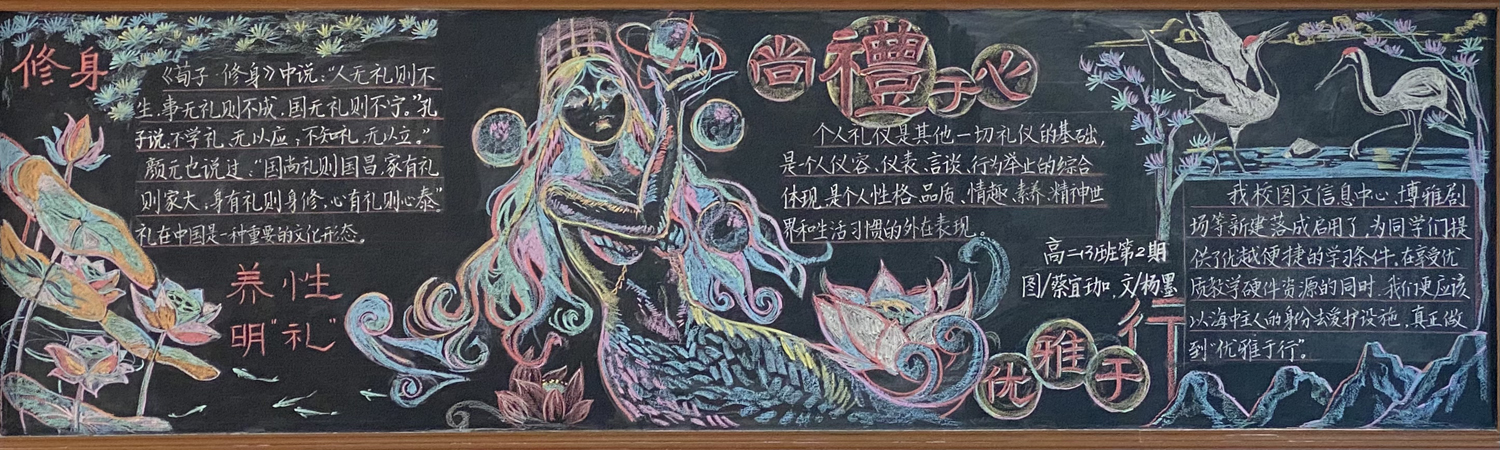 修身
《荀子·修身》中说:“人无礼则不
生,事无礼则不成,国无礼则不宁。”孔
子说,不学礼,无以应,不知礼,无以立。”
颜元也说过,“国尚礼则国昌,家有礼
则家大,身有礼则身修,心有礼则心泰”
礼在中国是一种重要的文化形态。
养性
明“礼”
尚禮于心
个人礼仪是其他一切礼仪的基础,
是个人仪容、仪表、言谈、行为举止的综合
体现,是个人性格、品质、情趣、素养、精神世
界和生活习惯的外在表现。
高二(3)班第2期
图/蔡宜珈,文/杨墨
优雅于行
我校图文信息中心、博雅剧
场等新建落成启用了,为同学们提
供了优越便捷的学习条件,在享受优
质教学硬件资源的同时,我们更应该
以海中主人的身份去爱护设施,真正做
到“优雅于行”。